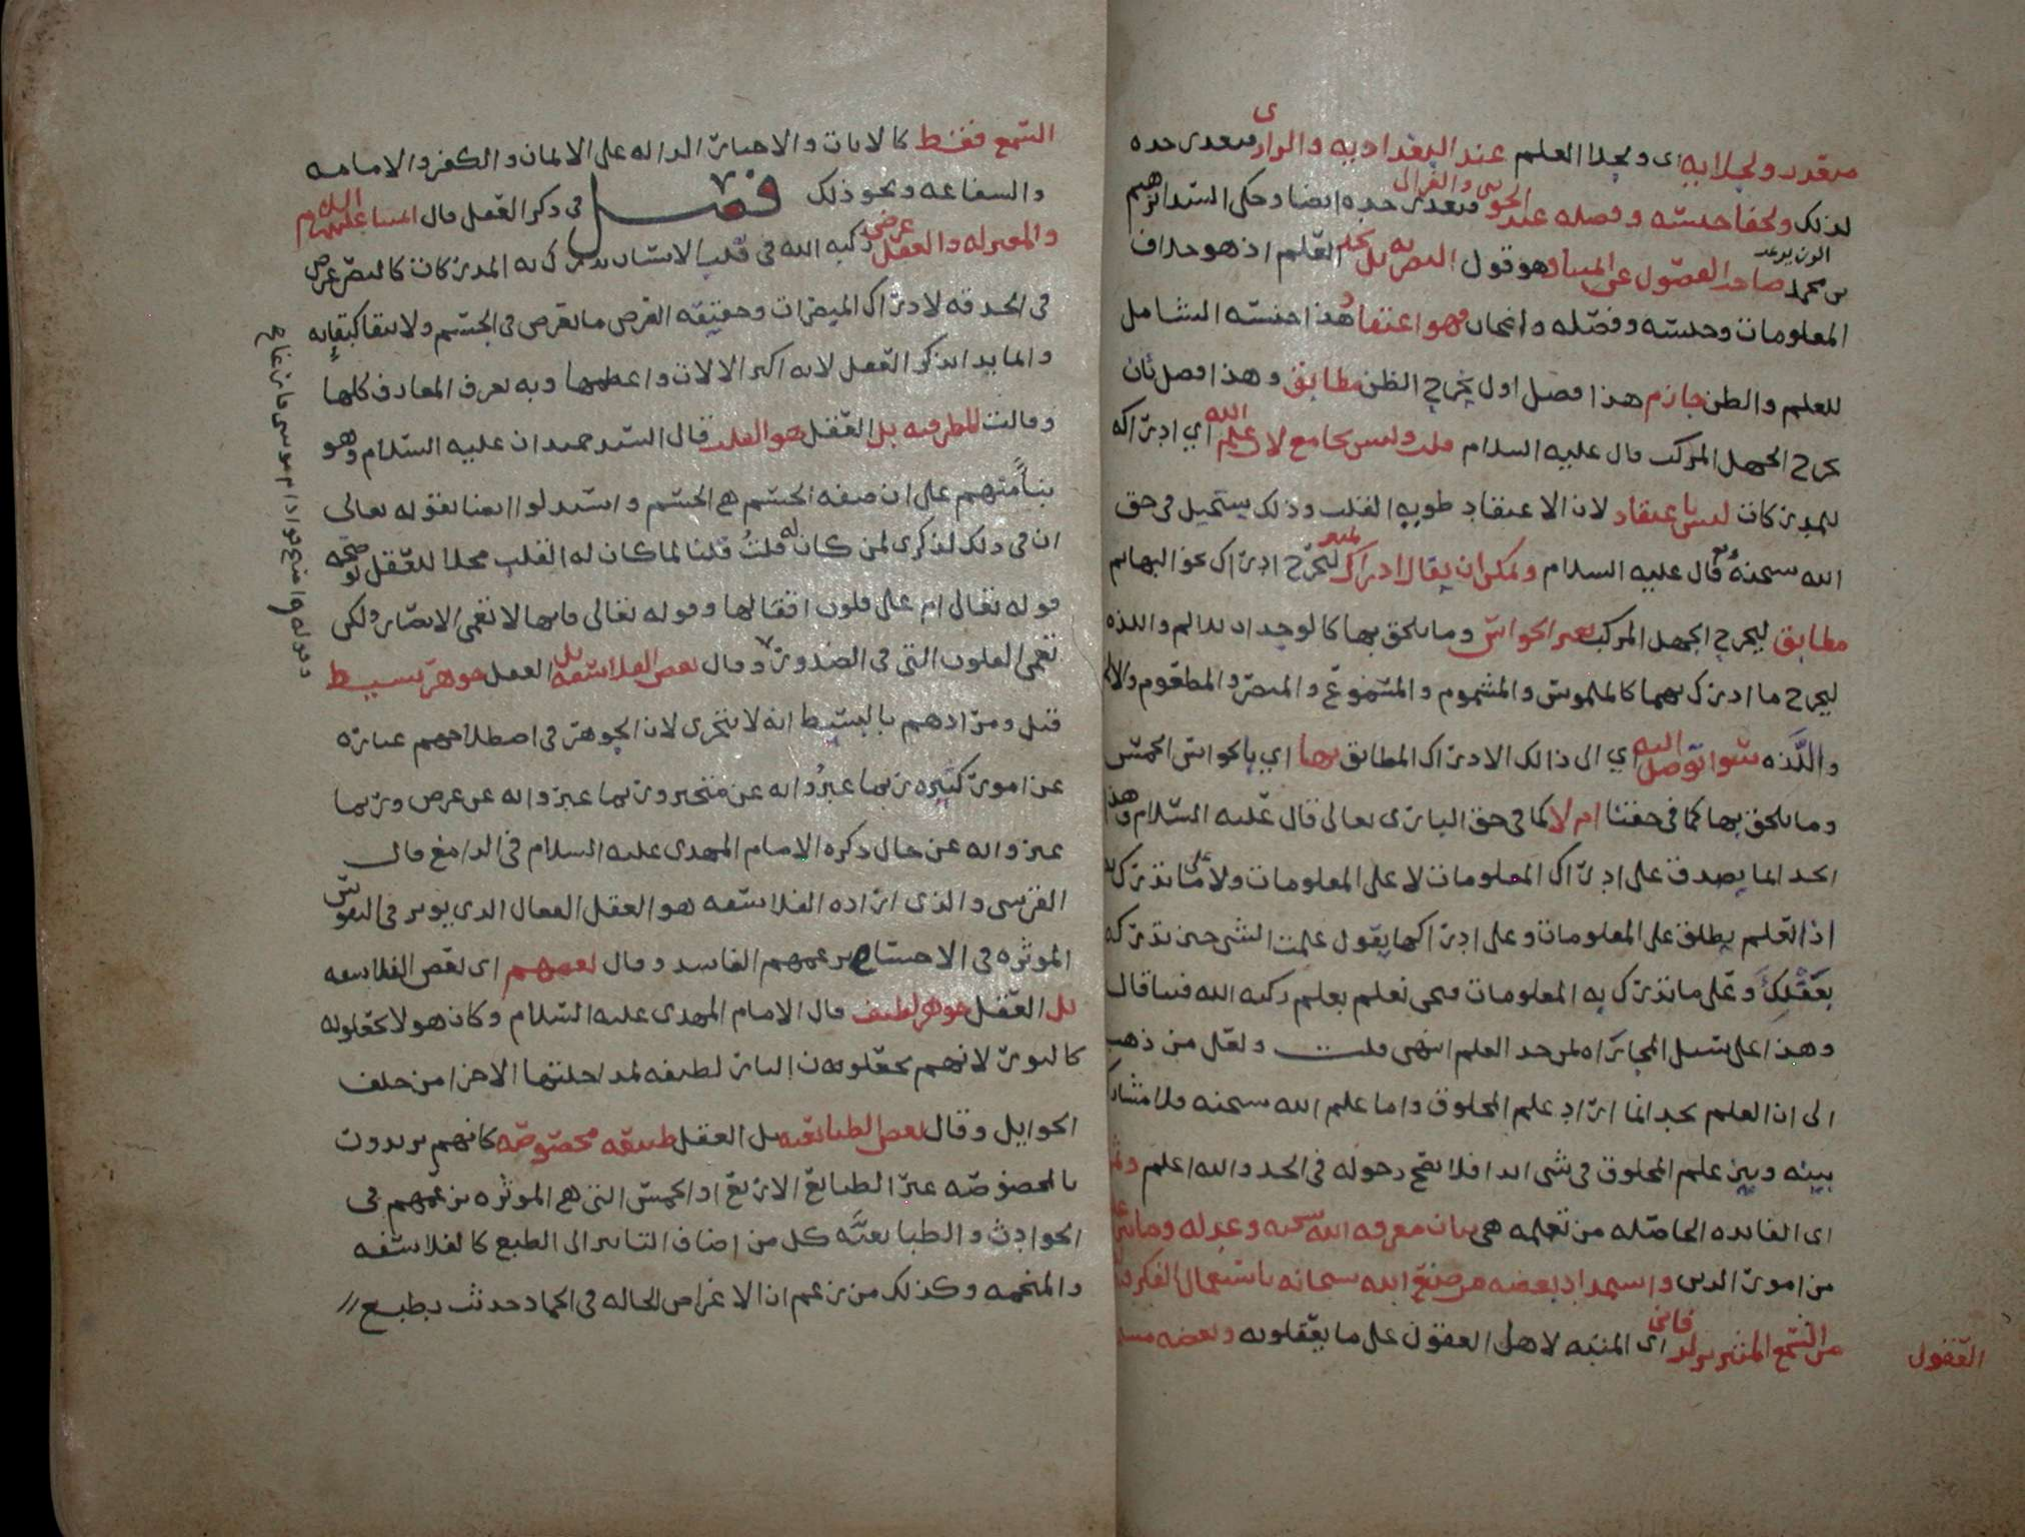 متعذر ولجلايه اى ولجلا العلم عند البغداديه والرازى فتعذر حده
لذلك ولخفا جنسه وفصله عند الجوينى والغزالى فتعذر حده ايضا وحكى السيد ابراهيم
بن محمد الوزير عن صاحب الفصول عن وهو قول البصريه بل يحد العلم اذ هو خلاف
المعلومات وجنسه وفصله واضحان فهو اعتقاد هذا جنسه الشامل
للعلم والظن جازم هذا فصل اول يخرج الظن مطابق وهذا فصل ثان
يخرج الجهل المركب قال عليه السلام قلت وليس بجامع لان علم الله اي ادراكه
للمدركات ليس باعتقاد لان الاعتقاد طويه القلب وذلك يستحيل في حق
الله سبحنه قال عليه السلام ويمكن ان يقال ادراك ليخرج ادراك نحو البهائم
مطابق ليخرج الجهل المركب بغير الحواس وما يلحق بها كالوجدان للالم واللذه
ليخرج ما ادرك بهما كالملموس والمشموم والمسموع والمبصر والمطعوم والالم
واللذه سوا توصل اليه اي الى ذالك الادراك المطابق بها اي بالحواس الخمس
وما يلحق بها كما في حقنا ام لا كما في حق البارى تعالى قال عليه السلام وهذا
الحد انما يصدق على ادراك المعلومات لا على المعلومات ولا على ما تدرك به
اذ العلم يطلق على المعلومات وعلى ادراكها يقول علمت الشي حين تدركه
بعقلك وعلى ما تدرك به المعلومات فنحن نعلم بعلم ركبه الله فينا قال
وهذا على سبيل المجاراه لمن حد العلم انتهى قلت ولعل من ذهب
الى ان العلم يحد انما اراد علم المخلوق واما علم الله سبحنه فلا مشاركه
بينه وبين علم المخلوق في شي ابدا فلا يصح دخوله في الحد والله اعلم
اى الفايده الحاصله من تعلمه هي بيان معرفه الله سبحنه وعدله وما
من امور الدين واستمداد بعضه من صنع الله سبحانه باستعمال الفكر
من السمع المثير لدفائن اى المنبه لاهل العقول على ما يعقلونه وبعضه
العقول
السمع فقط كالايات والاخبار الداله على الايمان والكفر والامامه
والشفاعه ونحو ذلك فصل في ذكر العقل قال ائمتنا عليهم السلام
والمعتزله والعقل عرض ركبه الله في قلب الانسان يدرك به المدركات كالبصر عرض
في الحدقه لادراك المبصرات وحقيقه العرض ما يعرض في الجسم ولا يبقا كبقائه
وانما بدا بذكر العقل لانه اكبر الالات واعظمها وبه تعرف المعارف كلها
وقالت المطرفيه بل العقل هو القلب قال السيد حميدان عليه السلام وهو
بناً منهم على ان صفه الجسم هي الجسم واستدلوا ايضا بقوله تعالى
ان في ذلك لذكرى لمن كان له قلب قلنا لما كان له القلب محلا للعقل
قوله تعالى ام على قلوب اقفالها وقوله تعالى فانها لا تعمى الابصار ولكن
تعمى القلوب التى في الصدور وقال بعض الفلاسفه بل العقل جوهر بسيط
قيل ومرادهم بالبسيط انه لا يتجزى لان الجوهر في اصطلاحهم عباره
عن امور كثيره ربما عبروا به عن متحيز وربما عبروا به عن عرض وربما
عبروا به عن حال ذكره الامام المهدى عليه السلام في الدامغ قال
القرشى والذى اراده الفلاسفه هو العقل الفعال الذى يوثر في النفوس
الموثره في الاجسام بزعمهم الفاسد وقال بعضهم اى بعض الفلاسفه
بل العقل جوهر لطيف قال الامام المهدى عليه السلام وكان هولا يجعلونه
كالنور لانهم يجعلون النار لطيفه لمداخلتها الاجزا من خلف
الحوايل وقال بعض الطبائعيه بل العقل طبيعه مخصوصه كانهم يريدون
بالمخصوصه غير الطبائع الاربع او الخمس التى هي الموثره بزعمهم في
الحوادث والطبايعيه كل من اضاف التاثير الى الطبع كالفلاسفه
والمنجمه وكذلك من زعم ان الاعراض الحاله في الجماد حدثت بطبع